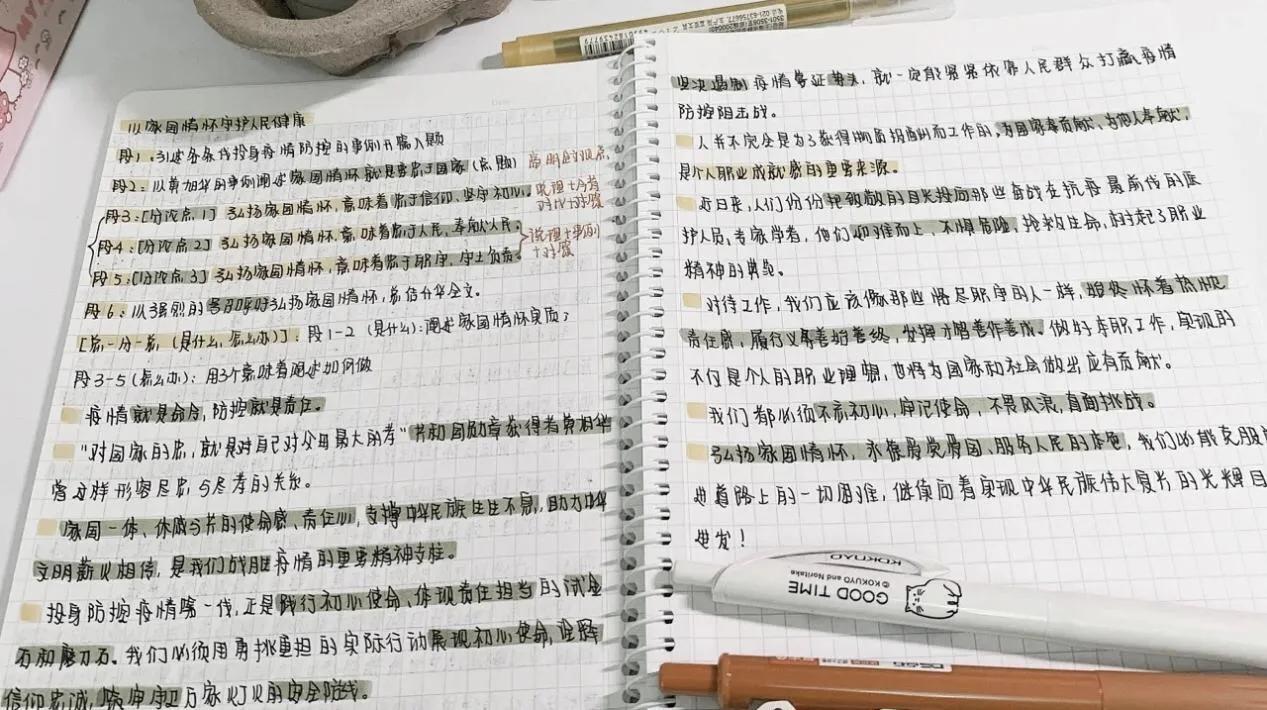 以家国情怀守护人民健康
段1:引述各条战线投身疫情防控的事例开篇入题
段2:以黄旭华的事例阐述家国情怀就是要忠于国家(点题) 亮明总观点
段3:[分论点1] 弘扬家国情怀,意味着忠于信仰、坚守初心。说理+今昔
对比+对策
段4:[分论点2] 弘扬家国情怀,意味着忠于人民,奉献人民。
说理+事例
+对策
段5:[分论点3] 弘扬家国情怀,意味着忠于职守,守土负责。
段6:以强烈的号召呼吁弘扬家国情怀,总结升华全文。
[总-分-总 (是什么,怎么办)]:段1-2 (是什么):阐述家国情怀实质;
段3-5(怎么办):用3个意味着阐述如何做
疫情就是命令,防控就是责任。
“对国家的忠,就是对自己对父母最大的孝”共和国勋章获得者黄旭华
曾这样形容尽忠与尽孝的关系。
家国一体、休戚与共的使命感、责任心,支撑中华民族生生不息,助力中华
文明薪火相传,是我们战胜疫情的重要精神支柱。
投身防控疫情第一线,正是践行初心使命、体现责任担当的试金
石和磨刀石。我们必须用勇挑重担的实际行动展现初心使命,诠释
信仰忠诚,守卫万家灯火的安全防线。
坚决遏制疫情蔓延势头,就一定能紧紧依靠人民群众打赢疫情
防控阻击战。
人并不完全是为了获得物质报酬而工作的,为国家奉贡献、为他人奉献,
是个人职业成就感的重要来源。
近日来,人们纷纷把敬佩的目光投向那些奋战在抗疫最前线的医
护人员、专家学者,他们迎难而上,不惧危险,抢救生命,树起了职业
精神的典范。
对待工作,我们应该像那些恪尽职守的人一样,始终怀着热忱
责任感,履行义务善始善终,发挥才智善作善成。做好本职工作,实现的
不仅是个人的职业理想,也将为国家和社会做出应有贡献。
我们都必须不忘初心,牢记使命,不畏风浪,直面挑战。
弘扬家国情怀,永葆爱党爱国、服务人民的本色,我们必能克服前
进道路上的一切困难,继续向着实现中华民族伟大复兴的光辉目
进发!
GOOD TIME
© KOKUYO and Noritake
KOKUYO